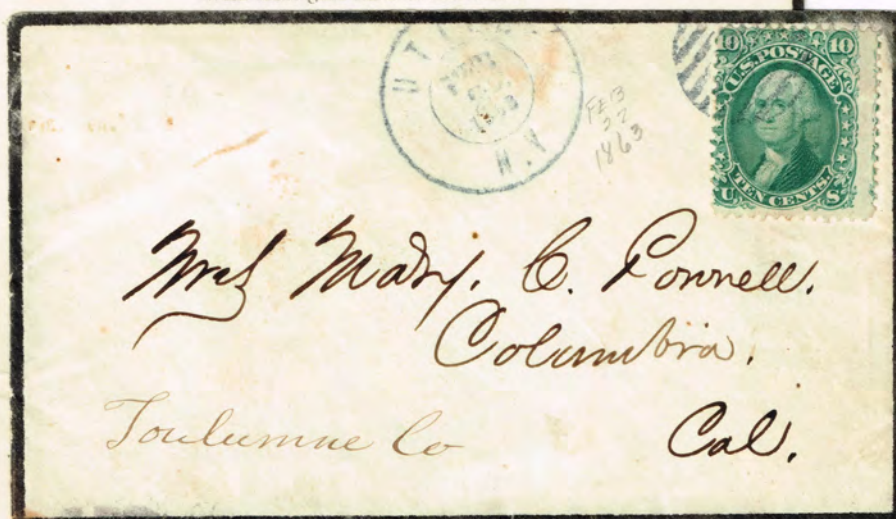 UTICA
N.Y.
FEB
27
1863
10 10
U.S. POSTAGE
TEN CENTS.
U S
Mrs Mary. C. Pownell.
Columbia.
Toulumne Co Cal.